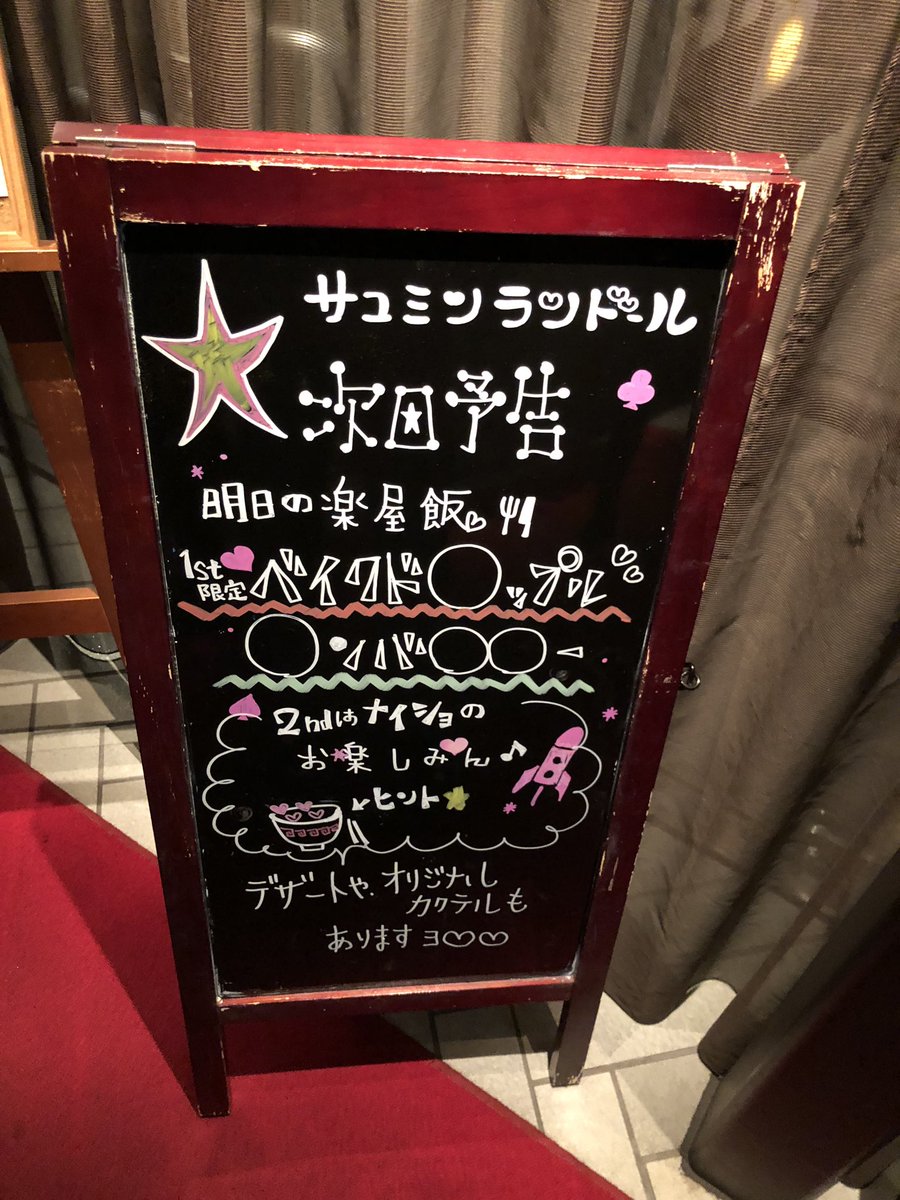 サユミンランドール
次回予告
明日の楽屋飯
1st限定 ベイクド〇ップル
〇ンバ〇〇ー
2ndはナイショの
お楽しみん♪
ヒント
デザートや、オリジナル
カクテルも
ありますヨ♡♡